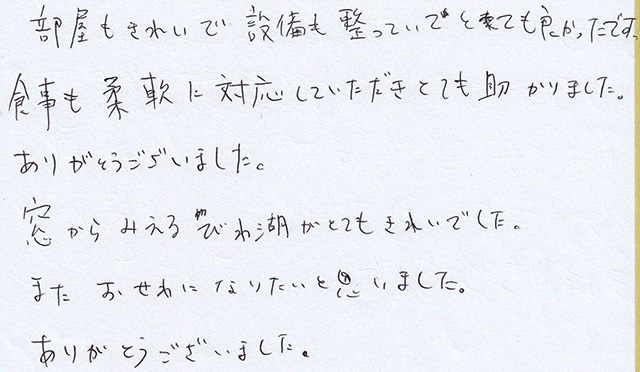 部屋もきれいで設備も整っていてとても良かったです。
食事も柔軟に対応していただきとても助かりました。
ありがとうございました。
窓からみえるびわ湖がとてもきれいでした。
また おせわになりたいと思いました。
ありがとうございました。